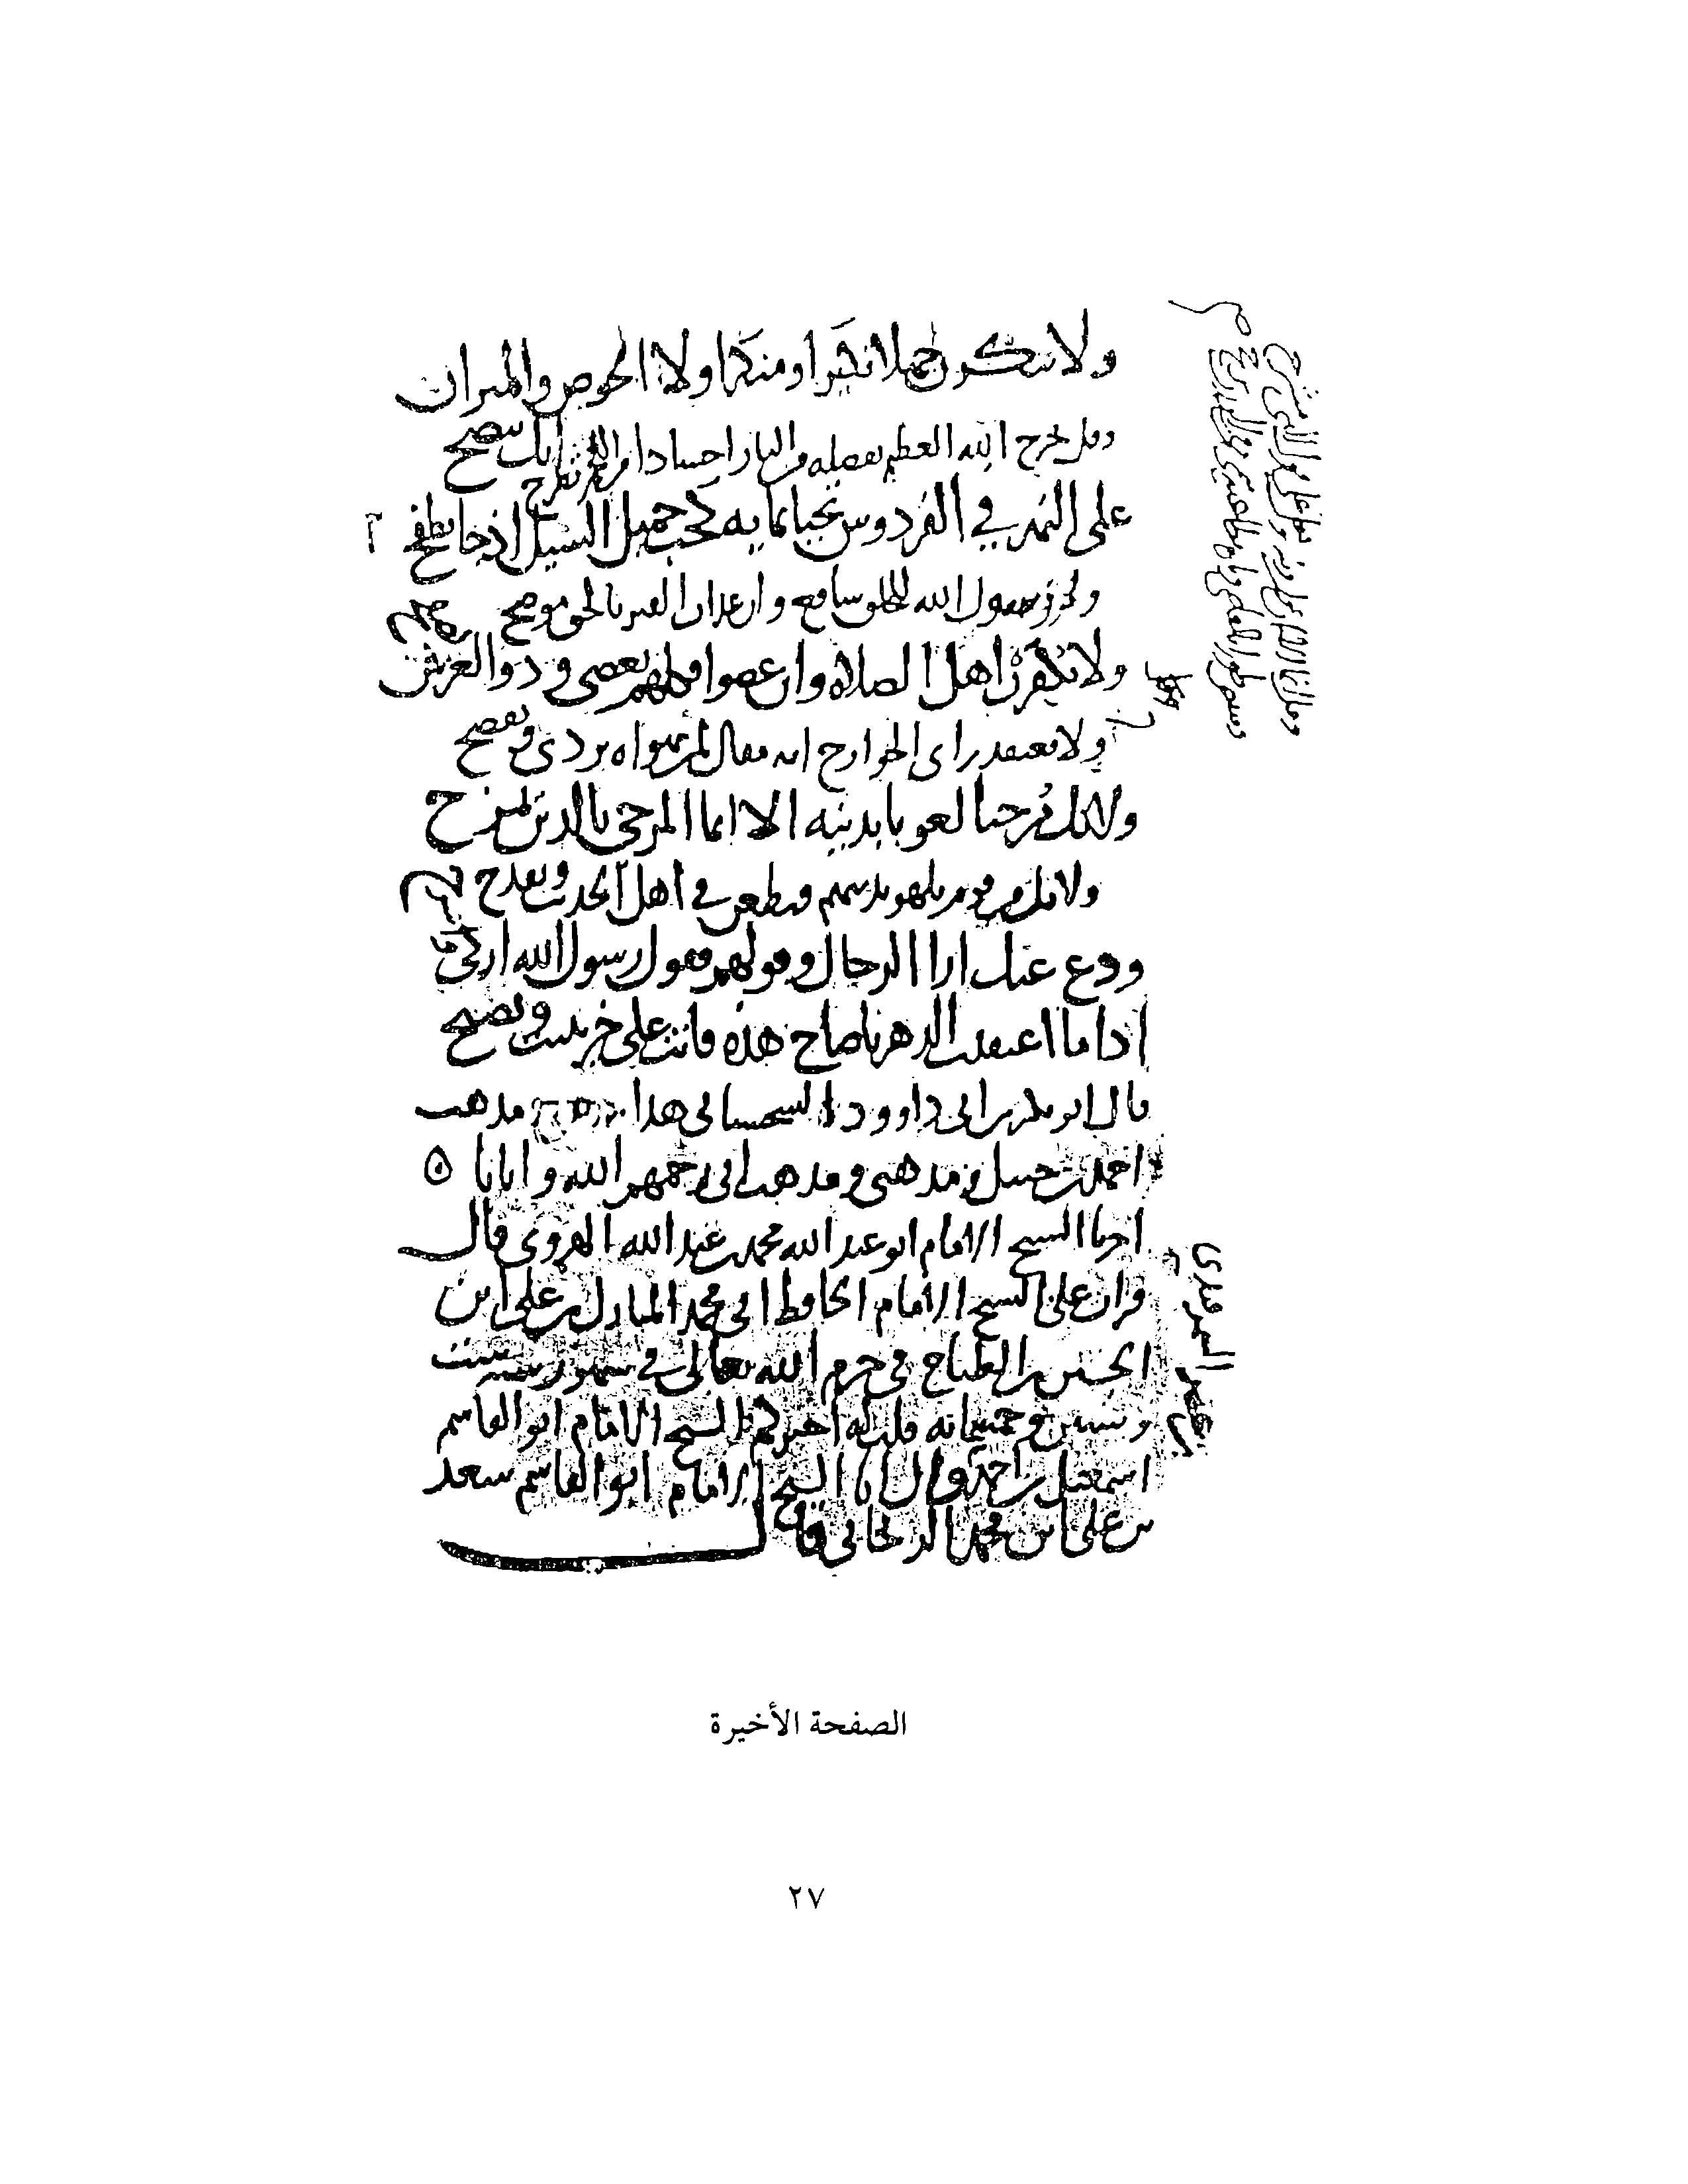 ولا تنكرن جهلا نكيرا ومنكرا ولا الحوض والميزان انك تنصح
وقل يخرج الله العظيم بفضله من النار اجسادا من الفحم تطرح
على النهر في الفردوس تحيا بمايه كحب حميل السيل اذ جا يطفح
وان رسول الله للخلق شافع وان عذاب القبر بالحق موضح
ولا تكفرن اهل الصلاة وان عصوا فكلهم يعصي وذو العرش يصفح
ولا تعتقد راى الخوارج انه مقال لمن يهواه يردي ويفضح
ولا تك مرجيا لعوبا بدينه الا انما المرجي بالدين يمزح
ولا تك من قوم تلهو بدينهم فتطعن في اهل الحديث وتقدح
ودع عنك ارا الرجال وقولهم فقول رسول الله ازكى
اذا ما اعتقدت الدهر يا صاح هذه فانت على خير تبيت وتصبح
قال ابو بكر بن ابي داوود السجستاني هذا مذهب
احمد بن حنبل ومذهبي ومذهب ابي رحمهم الله وايانا
اخبرنا الشيخ الامام ابو عبد الله محمد بن عبد الله الهروي قال
قرات على الشيخ الامام الحافظ ابي محمد المبارك بن علي ابن
الحسين بن الطباخ في حرم الله تعالى في شهور سنة ست
وستين وخمسمائة قلت له اخبركم الشيخ الامام ابو القاسم
اسمعيل بن احمد قال انا الشيخ الامام ابو القاسم سعد
بن علي ابن محمد الزنجاني قال
الصفحة الأخيرة
٢٧